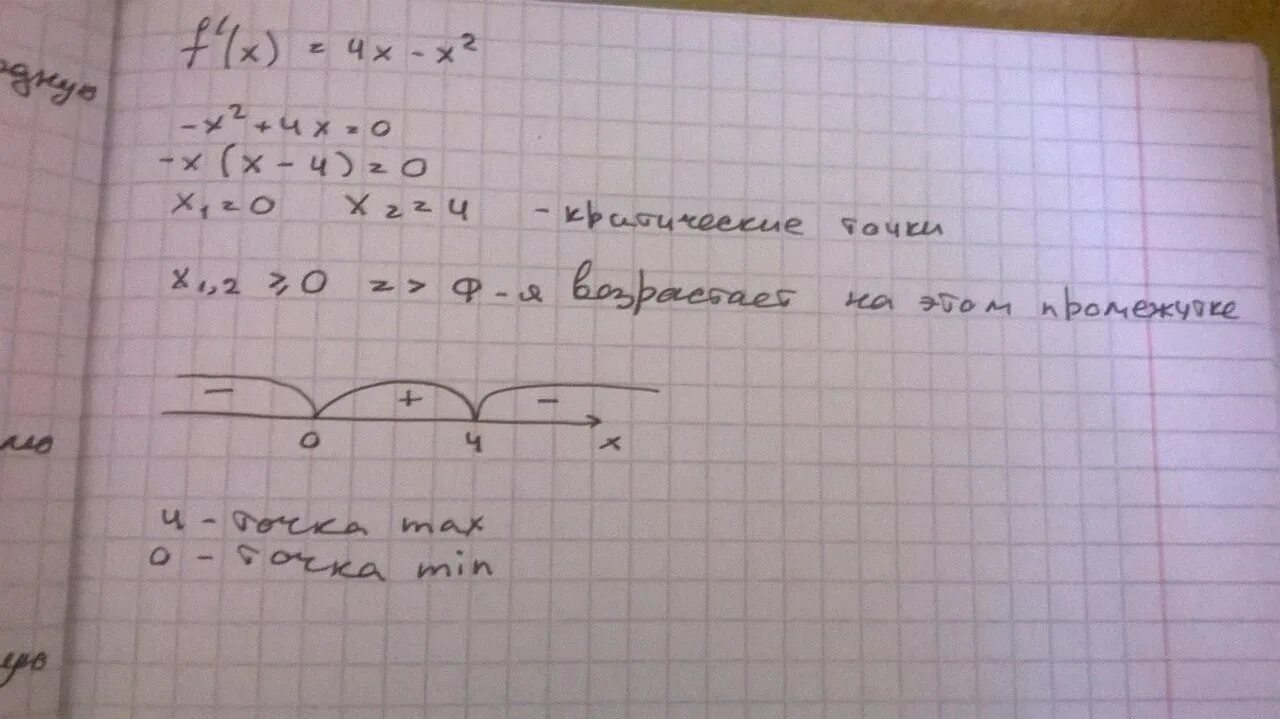 f'(x) = 4x - x²
-x² + 4x = 0
-x (x - 4) = 0
x₁ = 0 x₂ = 4 - критические точки
x₁,₂ ⩾ 0 => ф-я возрастает на этом промежутке
- + -
0 4 x
4 - точка max
0 - точка min